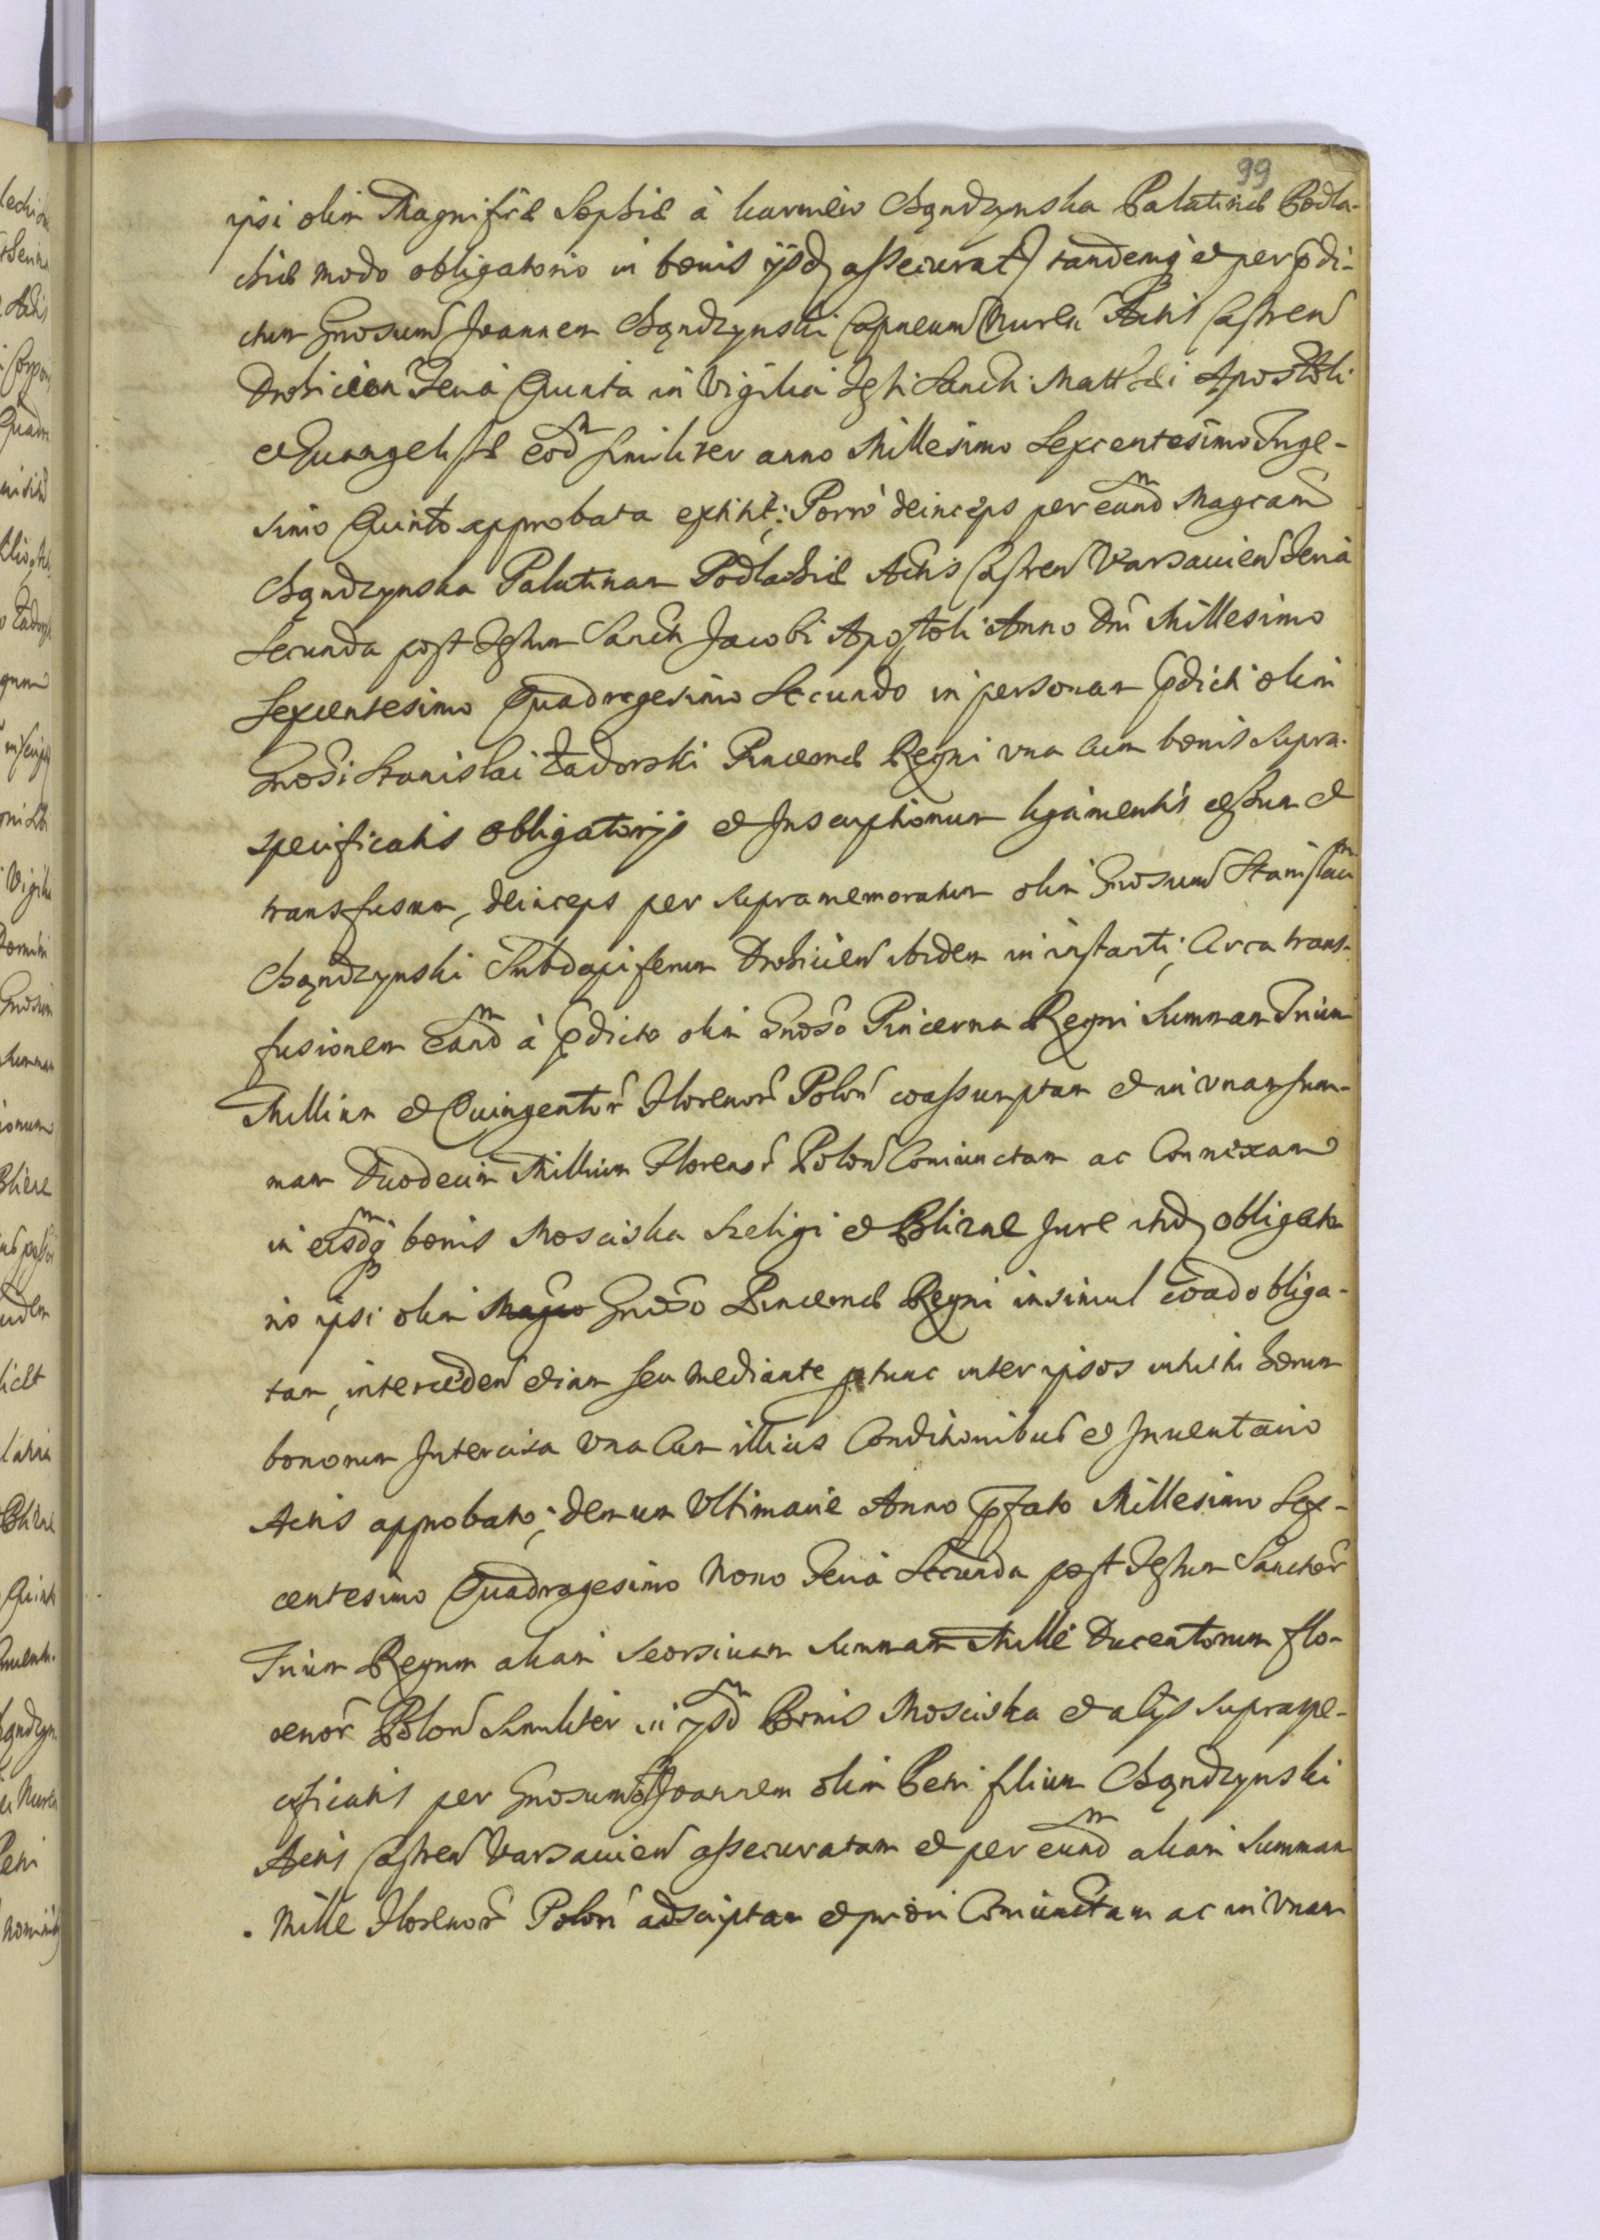 99
ipsi olim Magnificæ Sophiæ à karniew Chądzynska Palatinæ Podla-
chiæ modo obligatorio in bonis ijsdẽ assecurat tandemq̃ et per p̃di-
ctum Gnosum Joannem Chądzynski Capneum Nuren Actis Castren
Drohicien Feria Quinta in Vigilia Festi Sancti Matthæi Apostoli
et Euangelistæ eodm similiter anno Millesimo Sexcentesimo Trige-
simo Quinto approbata extitit; Porrò deinceps per eandm Magcam
Chądzynska Palatinam Podlachiæ Actis Castren Varsauien Feria
Secunda post Festum Sancti Jacobi Apostoli Anno Dni Millesimo
Sexcentesimo Quadragesimo Secundo in personam p̃dicti olim
Gnosi Stanislai Zadorski Pincernæ Regni vna cum bonis supra-
specificatis obligatorijs et Inscriptionum ligamentis cessum et
transfusum, deinceps per supramemoratum olim Gnosum Stanislaum
Chądzynski Subdapiferum Drohicien ibidem in instanti; Circa trans-
fusionem eandm à p̃dicto olim Gnoso Pincerna Regni Summam Trium
Millium et Quingentor̃ Florenor̃ Polon coassumptam et in vnam sum-
mam Duodecim Millium Florenor̃ Polon Coniunctam ac Connexam
in eisdmq̃ bonis Mosciska Szeligi et Blizne Jure itidẽ obligato-
rio ipsi olim Magco Gnoso Pincernæ Regni insimul coadobliga-
tam, interceden etiam seu mediante p tunc inter ipsos intuitu horum
bonorum Intercisa vna Cum illius Conditionibus et Inuentario
Actis approbato; demum Vltimarie Anno p̃fato Millesimo Sex-
centesimo Quadragesimo Nono Feria Secunda post Festum Sanctor̃
Trium Regum aliam seorsiuam Summam Mille Ducentorum flo-
renor̃ Polon Similiter in ijsdm Bonis Mosciska et alijs supraspe-
cificatis per Gnosum Joannem olim Petri filium Chądzynski
Actis Castren Varsauien assecuratam et per eundm aliam Summam
Mille Florenor̃ Polon adscriptam et priori Coniunctam ac in Vnam